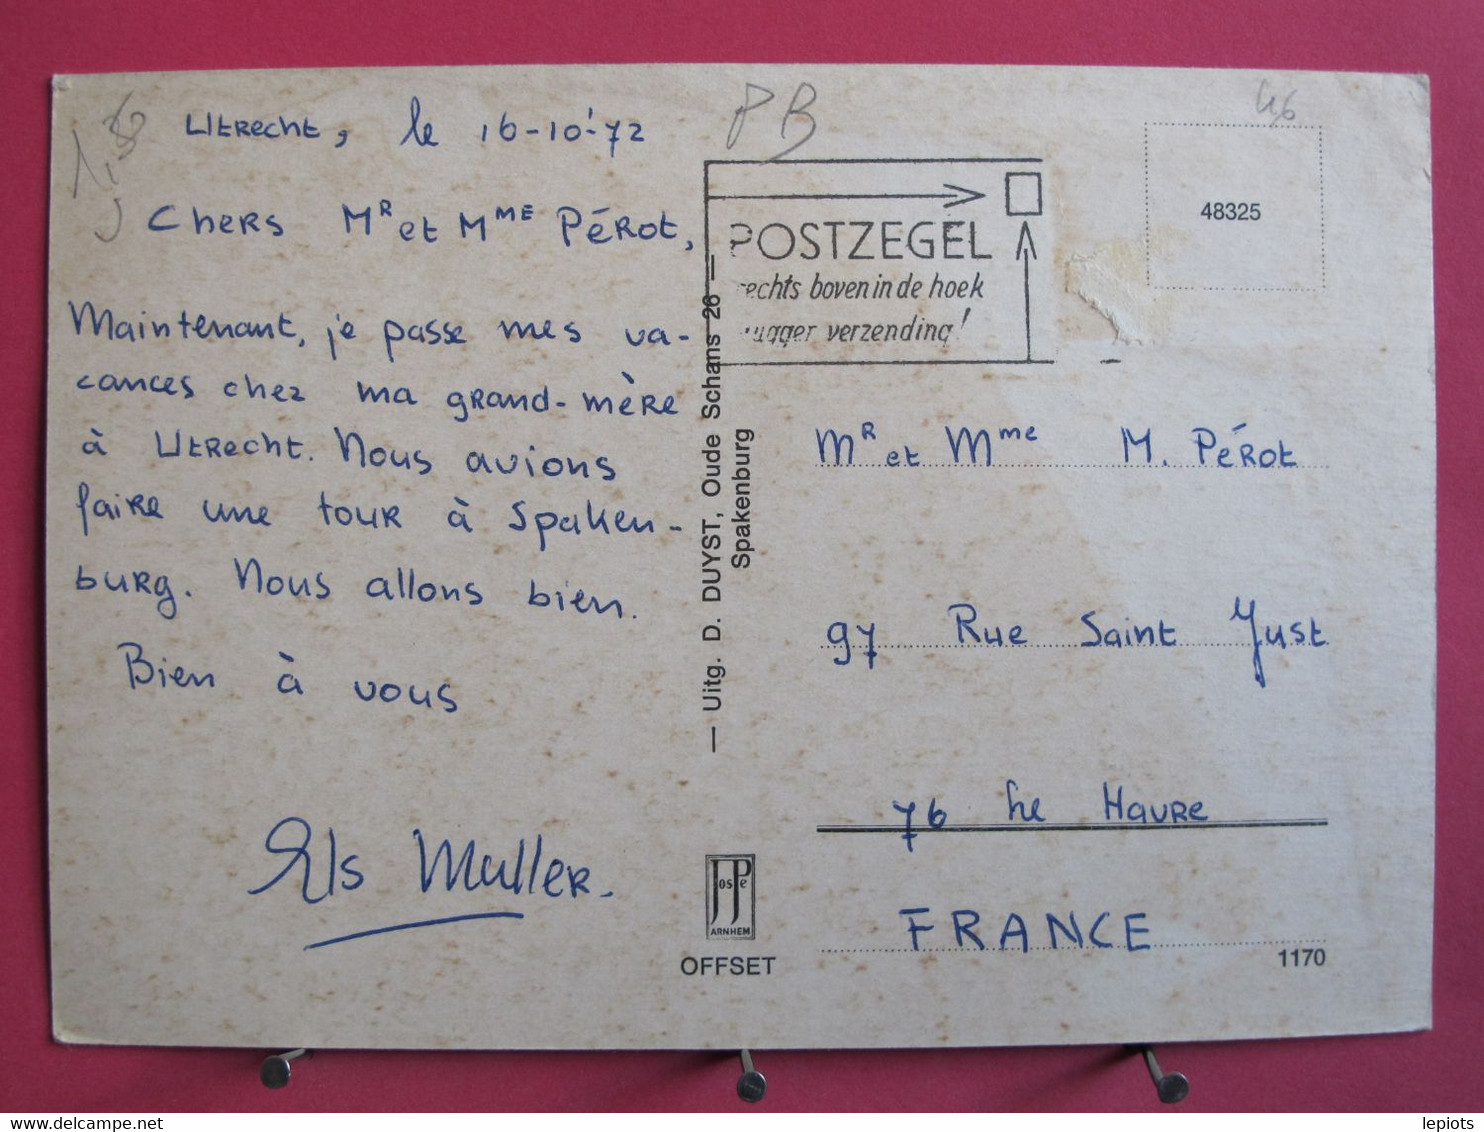 PB
46
Utrecht, le 16-10-'72
Chers Mr et Mme Pérot,
Maintenant, je passe mes va-
cances chez ma grand-mère
à Utrecht. Nous avions
faire une tour à Spaken-
burg. Nous allons bien.
Bien à vous
Els Muller.
POSTZEGEL
rechts boven in de hoek
vlugger verzending!
48325
— Uitg. D. DUYST, Oude Schans 26 —
Spakenburg
Mr et Mme M. Pérot
97 Rue Saint Just
76 Le Havre
FRANCE
JosPe
ARNHEM
OFFSET
1170
delcampe.net
lepiots